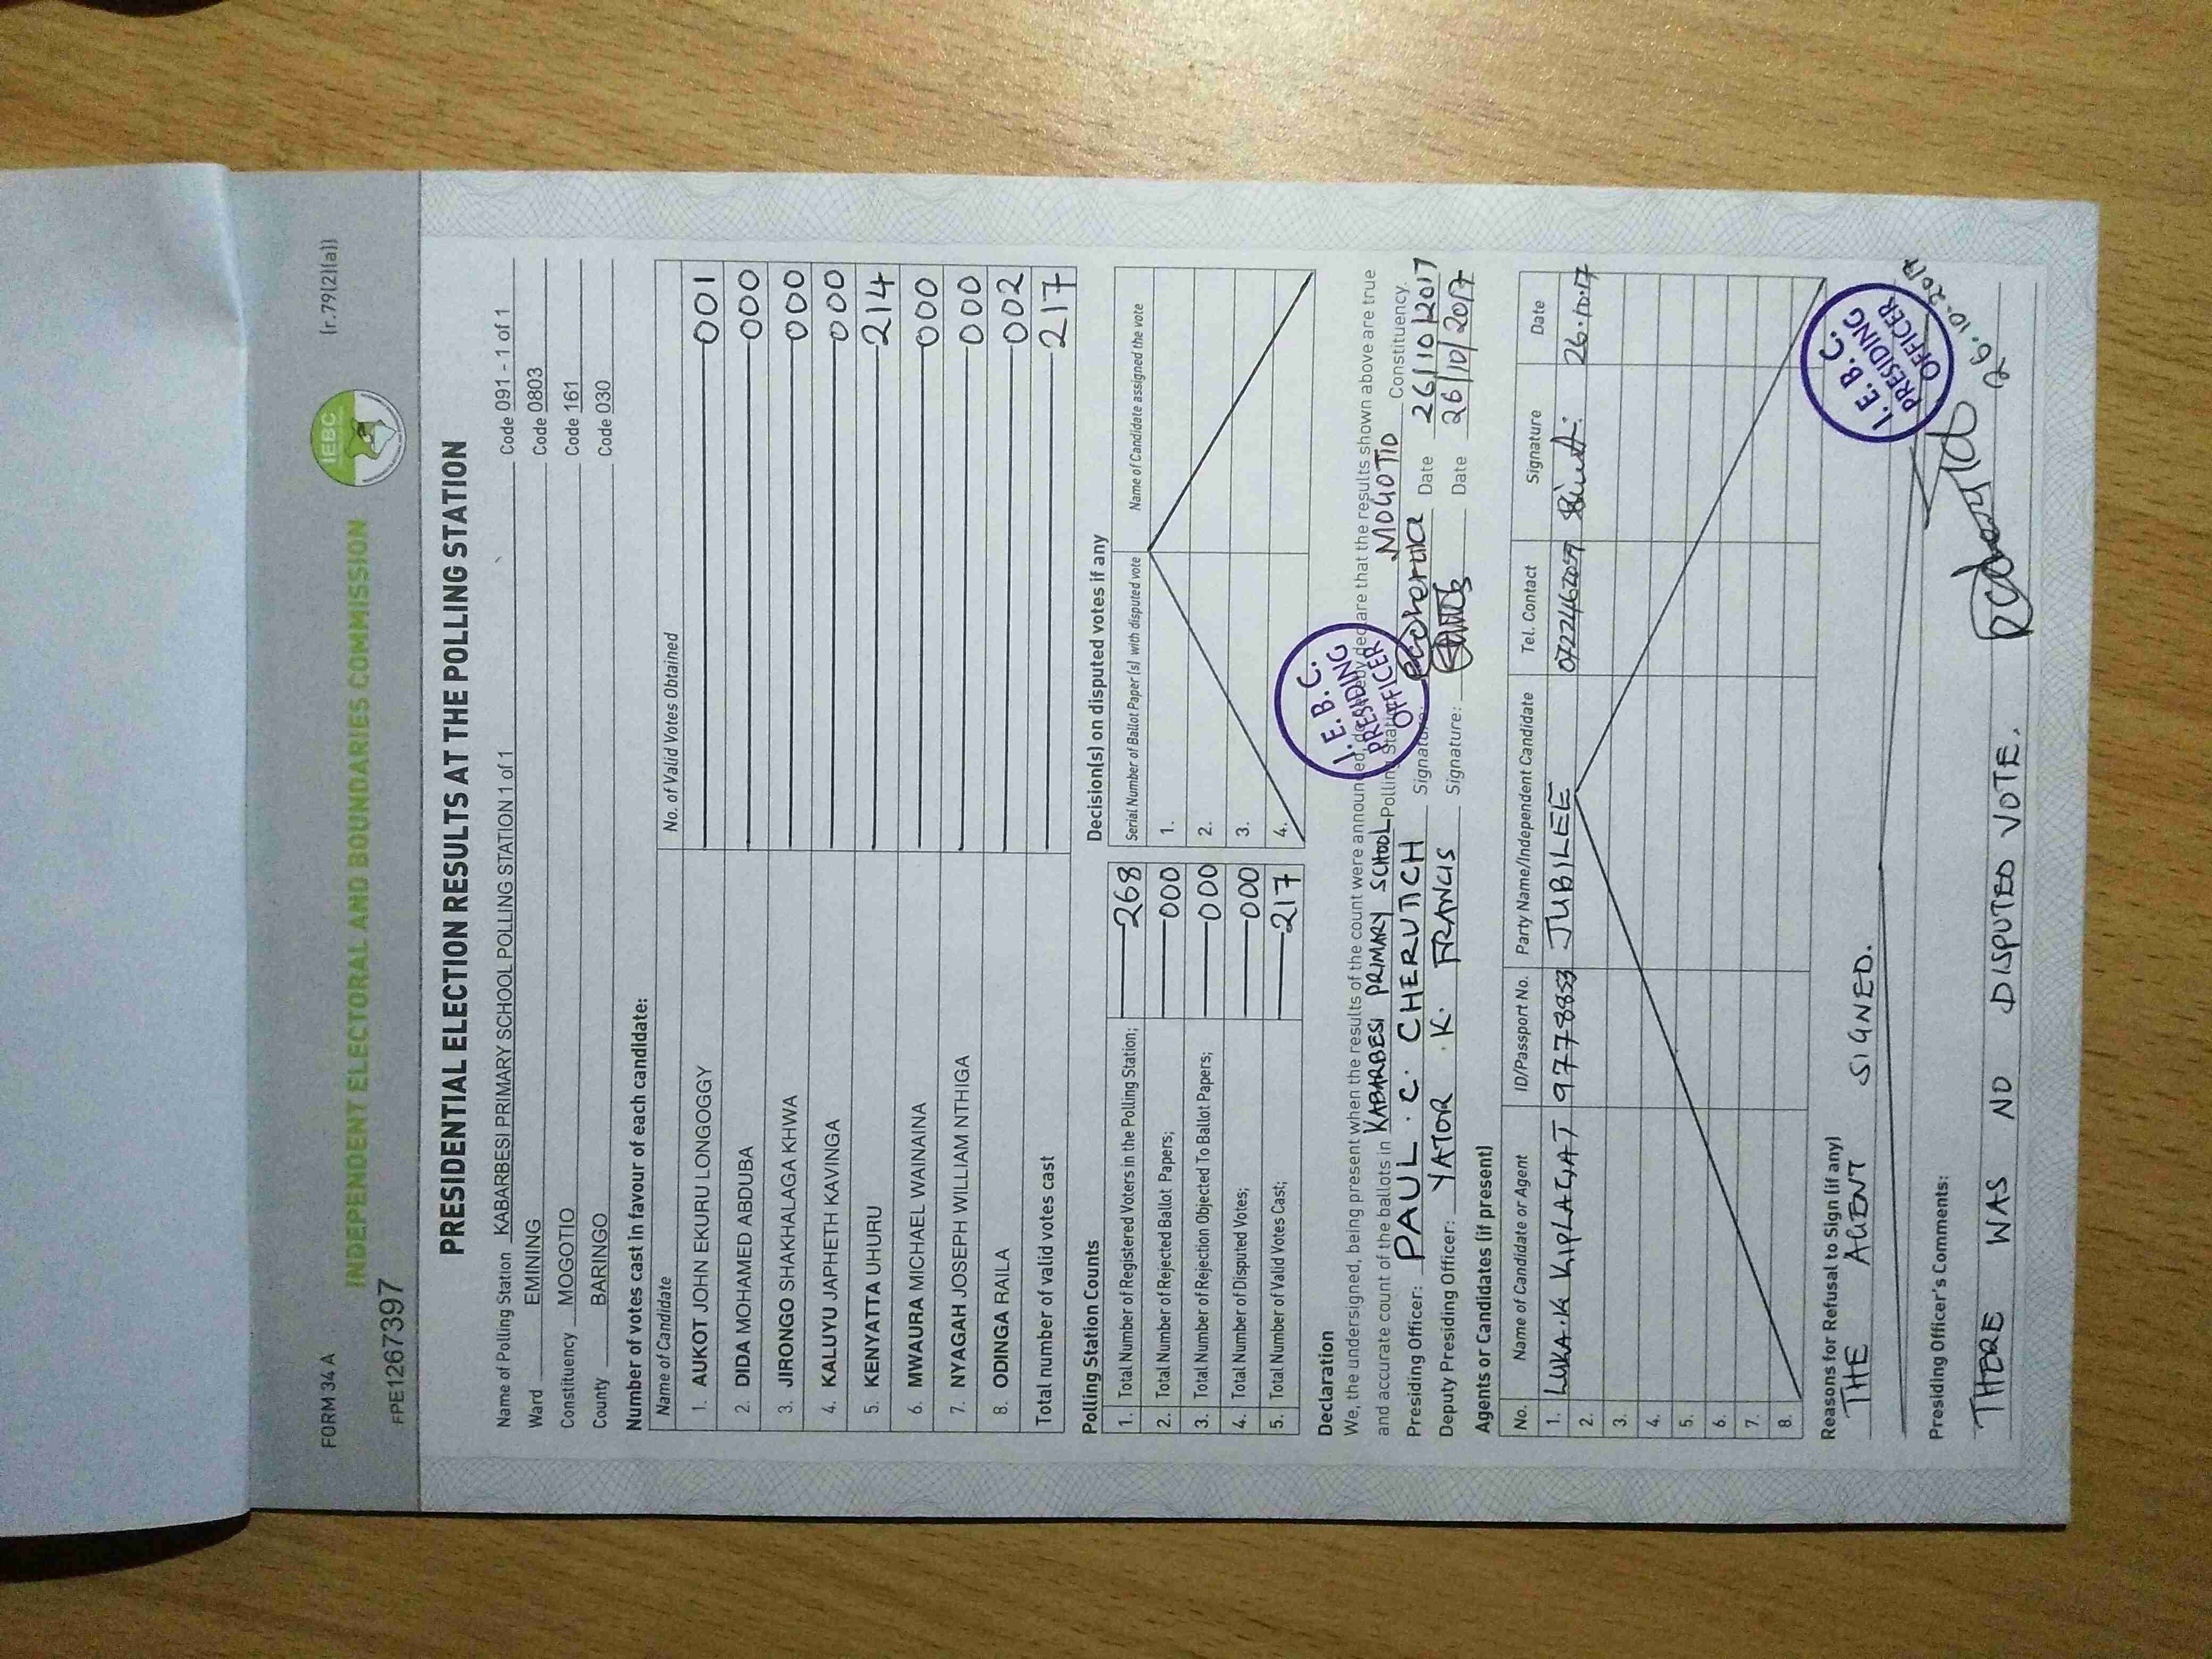 FORM 34 A
(r.79(2)(a))
IEBC
INDEPENDENT ELECTORAL AND BOUNDARIES COMMISSION
FPE1267397
PRESIDENTIAL ELECTION RESULTS AT THE POLLING STATION
Name of Polling Station KABARBESI PRIMARY SCHOOL POLLING STATION 1 of 1 Code 091 - 1 of 1
Ward EMINING Code 0803
Constituency MOGOTIO Code 161
County BARINGO Code 030
Number of votes cast in favour of each candidate:
Name of Candidate No. of Valid Votes Obtained
1. AUKOT JOHN EKURU LONGOGGY 001
2. DIDA MOHAMED ABDUBA 000
3. JIRONGO SHAKHALAGA KHWA 000
4. KALUYU JAPHETH KAVINGA 000
5. KENYATTA UHURU 214
6. MWAURA MICHAEL WAINAINA 000
7. NYAGAH JOSEPH WILLIAM NTHIGA 000
8. ODINGA RAILA 002
Total number of valid votes cast 217
Polling Station Counts
1. Total Number of Registered Voters in the Polling Station; 268
2. Total Number of Rejected Ballot Papers; 000
3. Total Number of Rejection Objected To Ballot Papers; 000
4. Total Number of Disputed Votes; 000
5. Total Number of Valid Votes Cast; 217
Decision(s) on disputed votes if any
Serial Number of Ballot Paper (s) with disputed vote Name of Candidate assigned the vote
1.
2.
3.
4.
I. E. B. C.
PRESIDING
OFFICER
Declaration
We, the undersigned, being present when the results of the count were announced, do hereby declare that the results shown above are true
and accurate count of the ballots in KABARBESI PRIMARY SCHOOL Polling Station MOGOTIO Constituency.
Presiding Officer: PAUL . C . CHERUTICH Signature: Date 26/10/2017
Deputy Presiding Officer: YATOR . K. FRANCIS Signature: Date 26/10/2017
Agents or Candidates (if present)
No. Name of Candidate or Agent ID/Passport No. Party Name/Independent Candidate Tel. Contact Signature Date
1. LUKA.K KIPLAGAT 97778853 JUBILEE 26.10.17
2.
3.
4.
5.
6.
7.
8.
I. E. B. C.
PRESIDING
OFFICER
Reasons for Refusal to Sign (if any)
THE AGENT SIGNED.
26.10.2017
Presiding Officer's Comments:
THERE WAS NO DISPUTED VOTE.